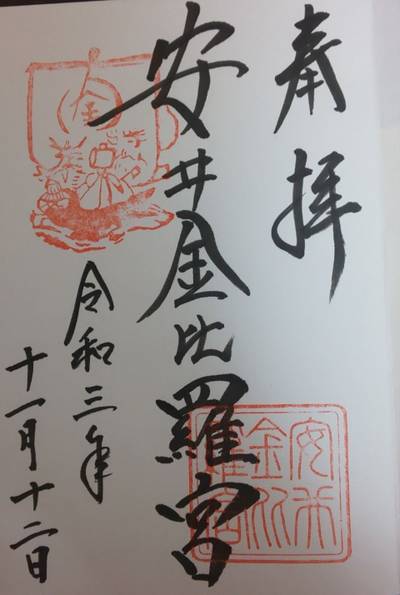 奉拝
安井金比羅宮
令和三年
十一月十二日
金
安井
金比
羅宮